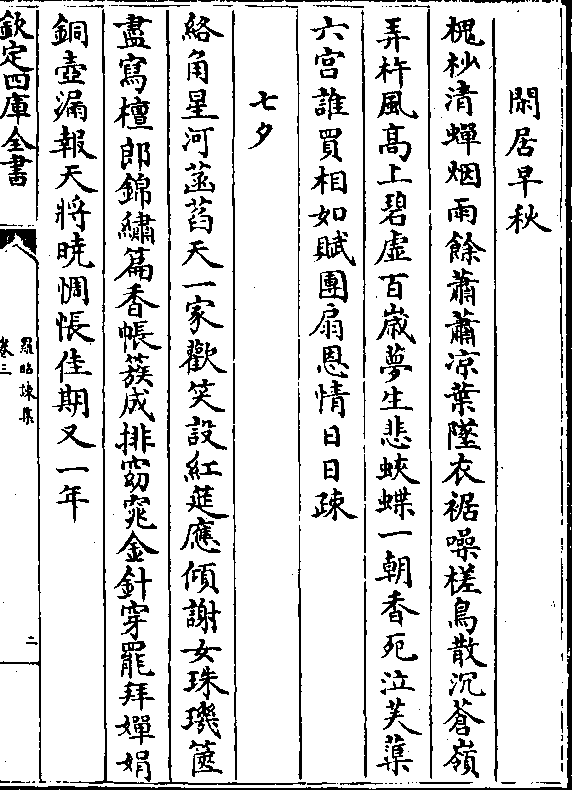 閑居早秋
槐杪清蟬烟雨餘蕭蕭凉葉墜衣裾噪槎鳥散沉蒼嶺
弄杵風高上碧虚百嵗夢生悲蛺蝶一朝香死泣芙蕖
六宫誰買相如賦團扇恩情日日疎
七夕
絡角星河菡萏天一家歡笑設紅筵應傾謝女珠璣篋
盡寫檀郎錦繡篇香帳簇成排窈窕金針穿罷拜嬋娟
銅壺漏報天將曉惆悵佳期又一年
欽定四庫全書
羅昭諫集
卷三
二